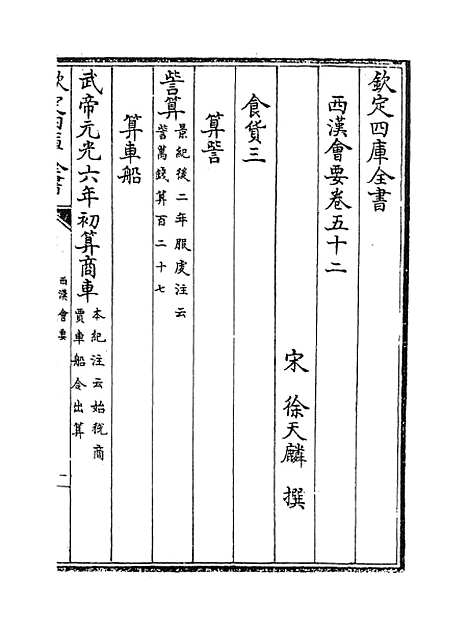 欽定四庫全書
西漢會要卷五十二
宋 徐天麟 撰
食貨三
算訾
訾算
景紀後二年服虔注云
訾萬錢算百二十七
算車船
武帝元光六年初算商車
本紀注云始稅商
賈車船令出算
欽定四庫全書
西漢會要
一